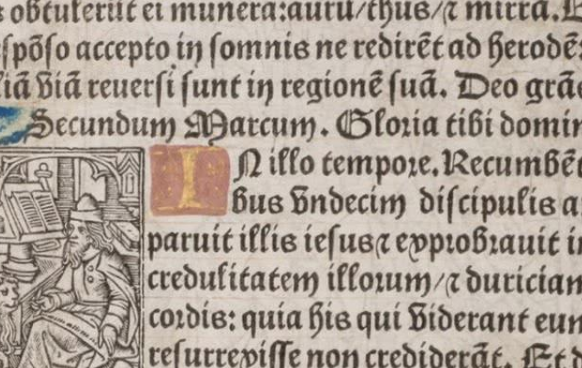 obtulerūt ei munera: aurū/thus/⁊ mirrā.
spōso accepto in somnis ne redirēt ad herodē
iā viā reuersi sunt in regionē suā. Deo grā
Secundum Marcum. Gloria tibi domin
IN illo tempore. Recumbēt
bus vndecim discipulis a
paruit illis iesus ⁊ exprobrauit i
credulitatem illorum/⁊ duriciam
cordis: quia his qui viderant eum
resurrexisse non crediderāt. Et